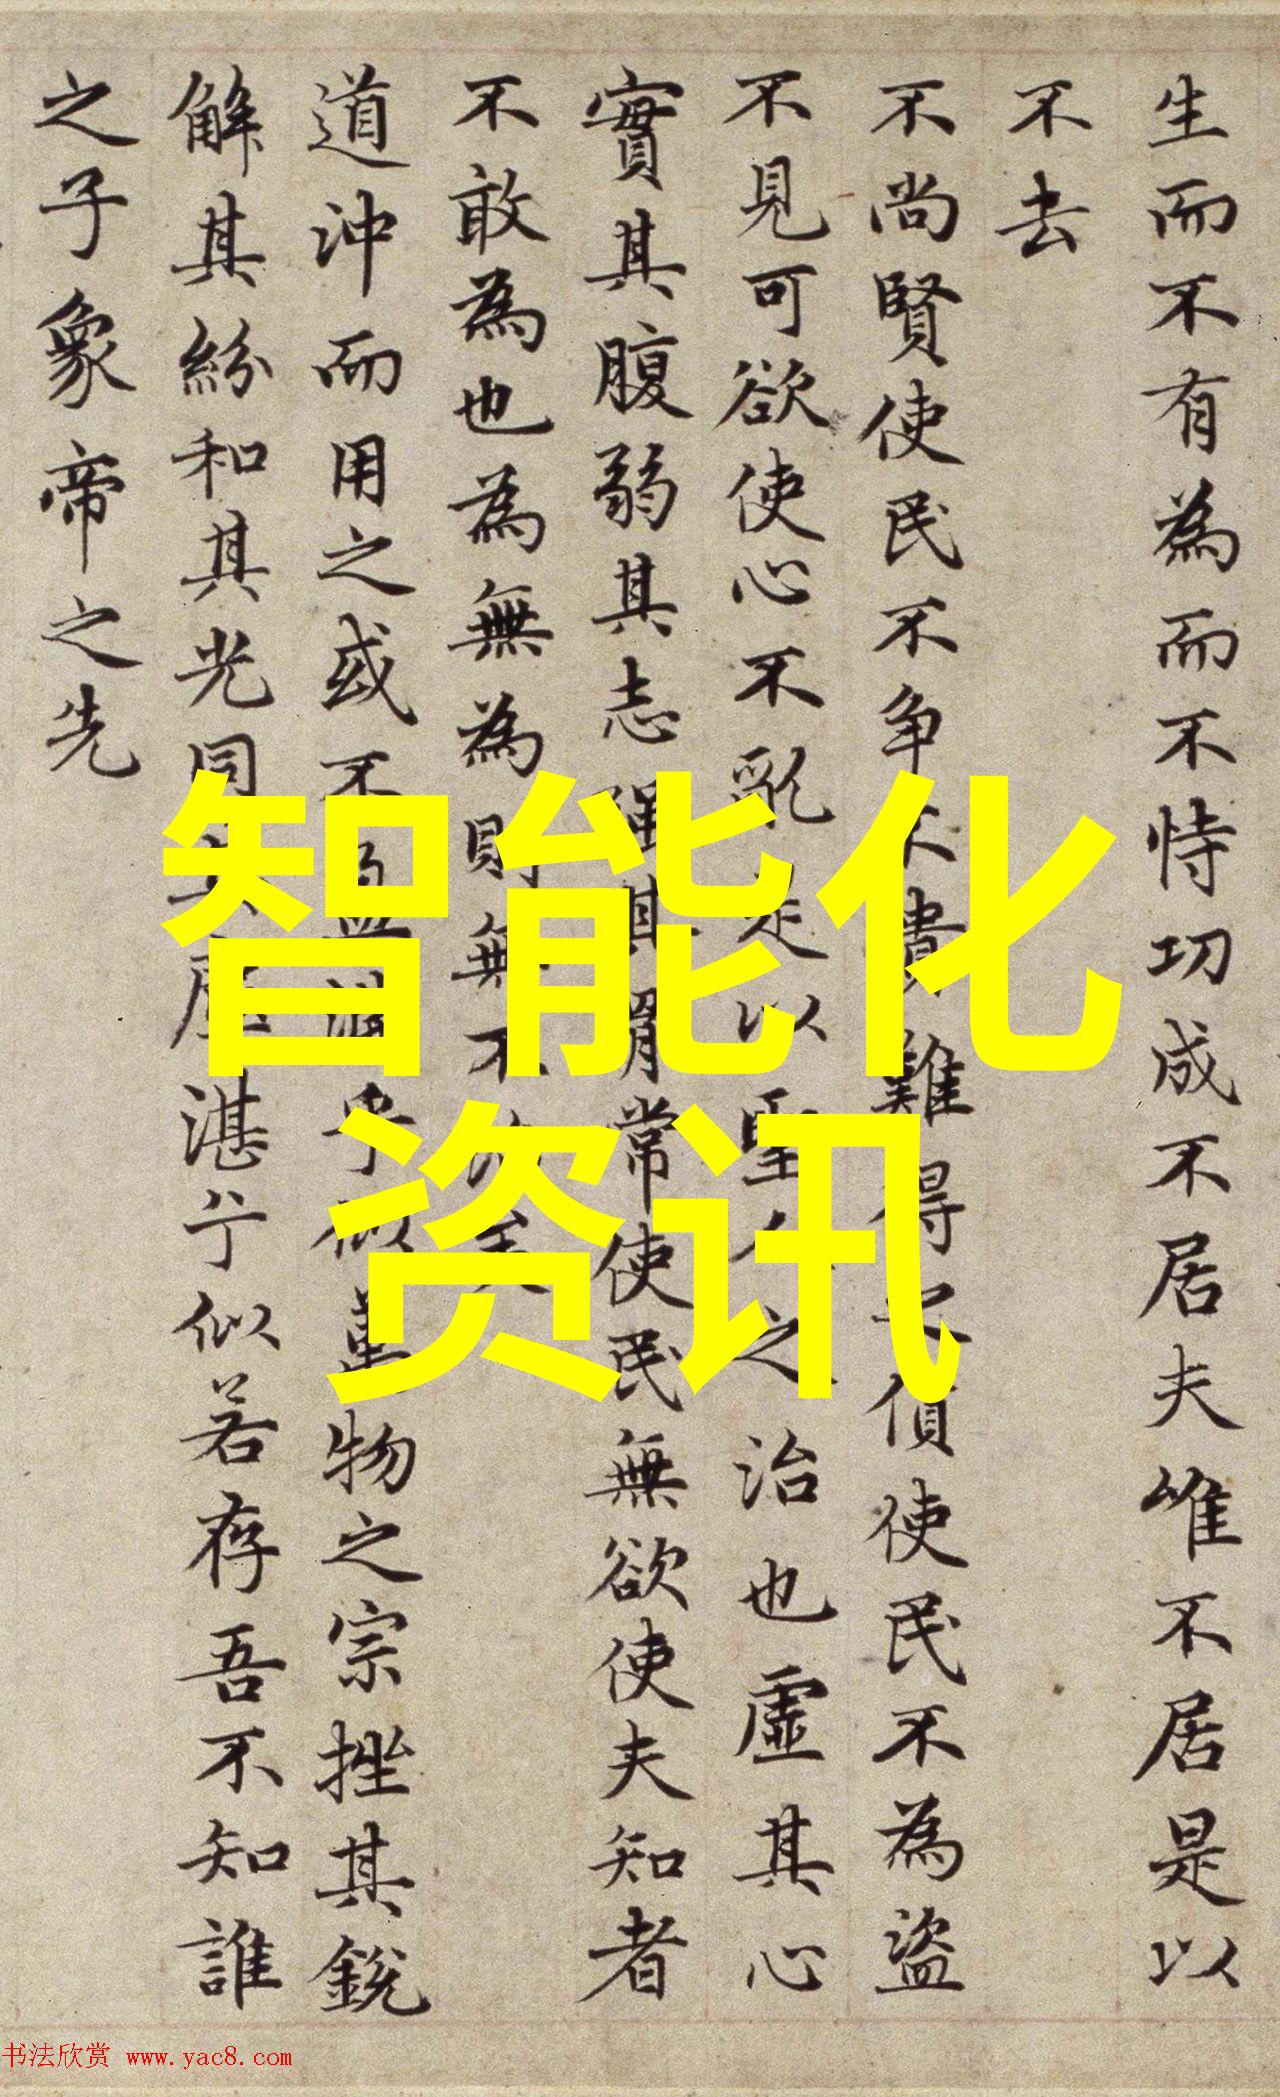 生而不有為而不恃功成不居夫唯不居是以
不去
不尚賢使民不争不貴難得之價使民不為盜
不見可欲使心不亂是以聖人之治也虛其心
實其腹弱其志強其骨常使民無欲使夫知者
不敢為也為無為則無不為矣
道沖而用之或不盈淵乎似萬物之宗挫其銳
解其紛和其光同其塵湛兮似若存吾不知誰
之子象帝之先
智能化
资讯
书法欣赏 www.yac8.com